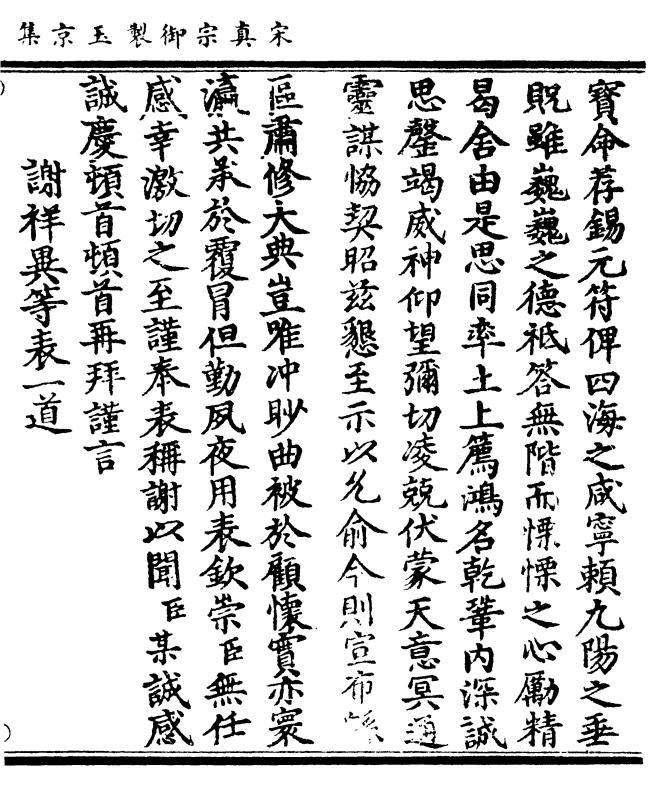 宋真宗御製玉京集
寶命荐錫元符俾四海之咸寧賴九陽之垂
貺雖巍巍之德祗答無階而慄慄之心勵精
曷舍由是思同率土上薦鴻名乾鞏內深誠
思罄竭威神仰望彌切凌兢伏蒙天意冥通
靈謀恊契昭兹懇至示以允俞今則宣布
區肅修大典豈唯冲眇曲被於顧懷實亦寰
瀛共承於覆冒但勤夙夜用表欽崇臣無任
感幸激切之至謹奉表稱謝以聞臣某誠感
誠慶頓首頓首再拜謹言
謝祥異等表一道